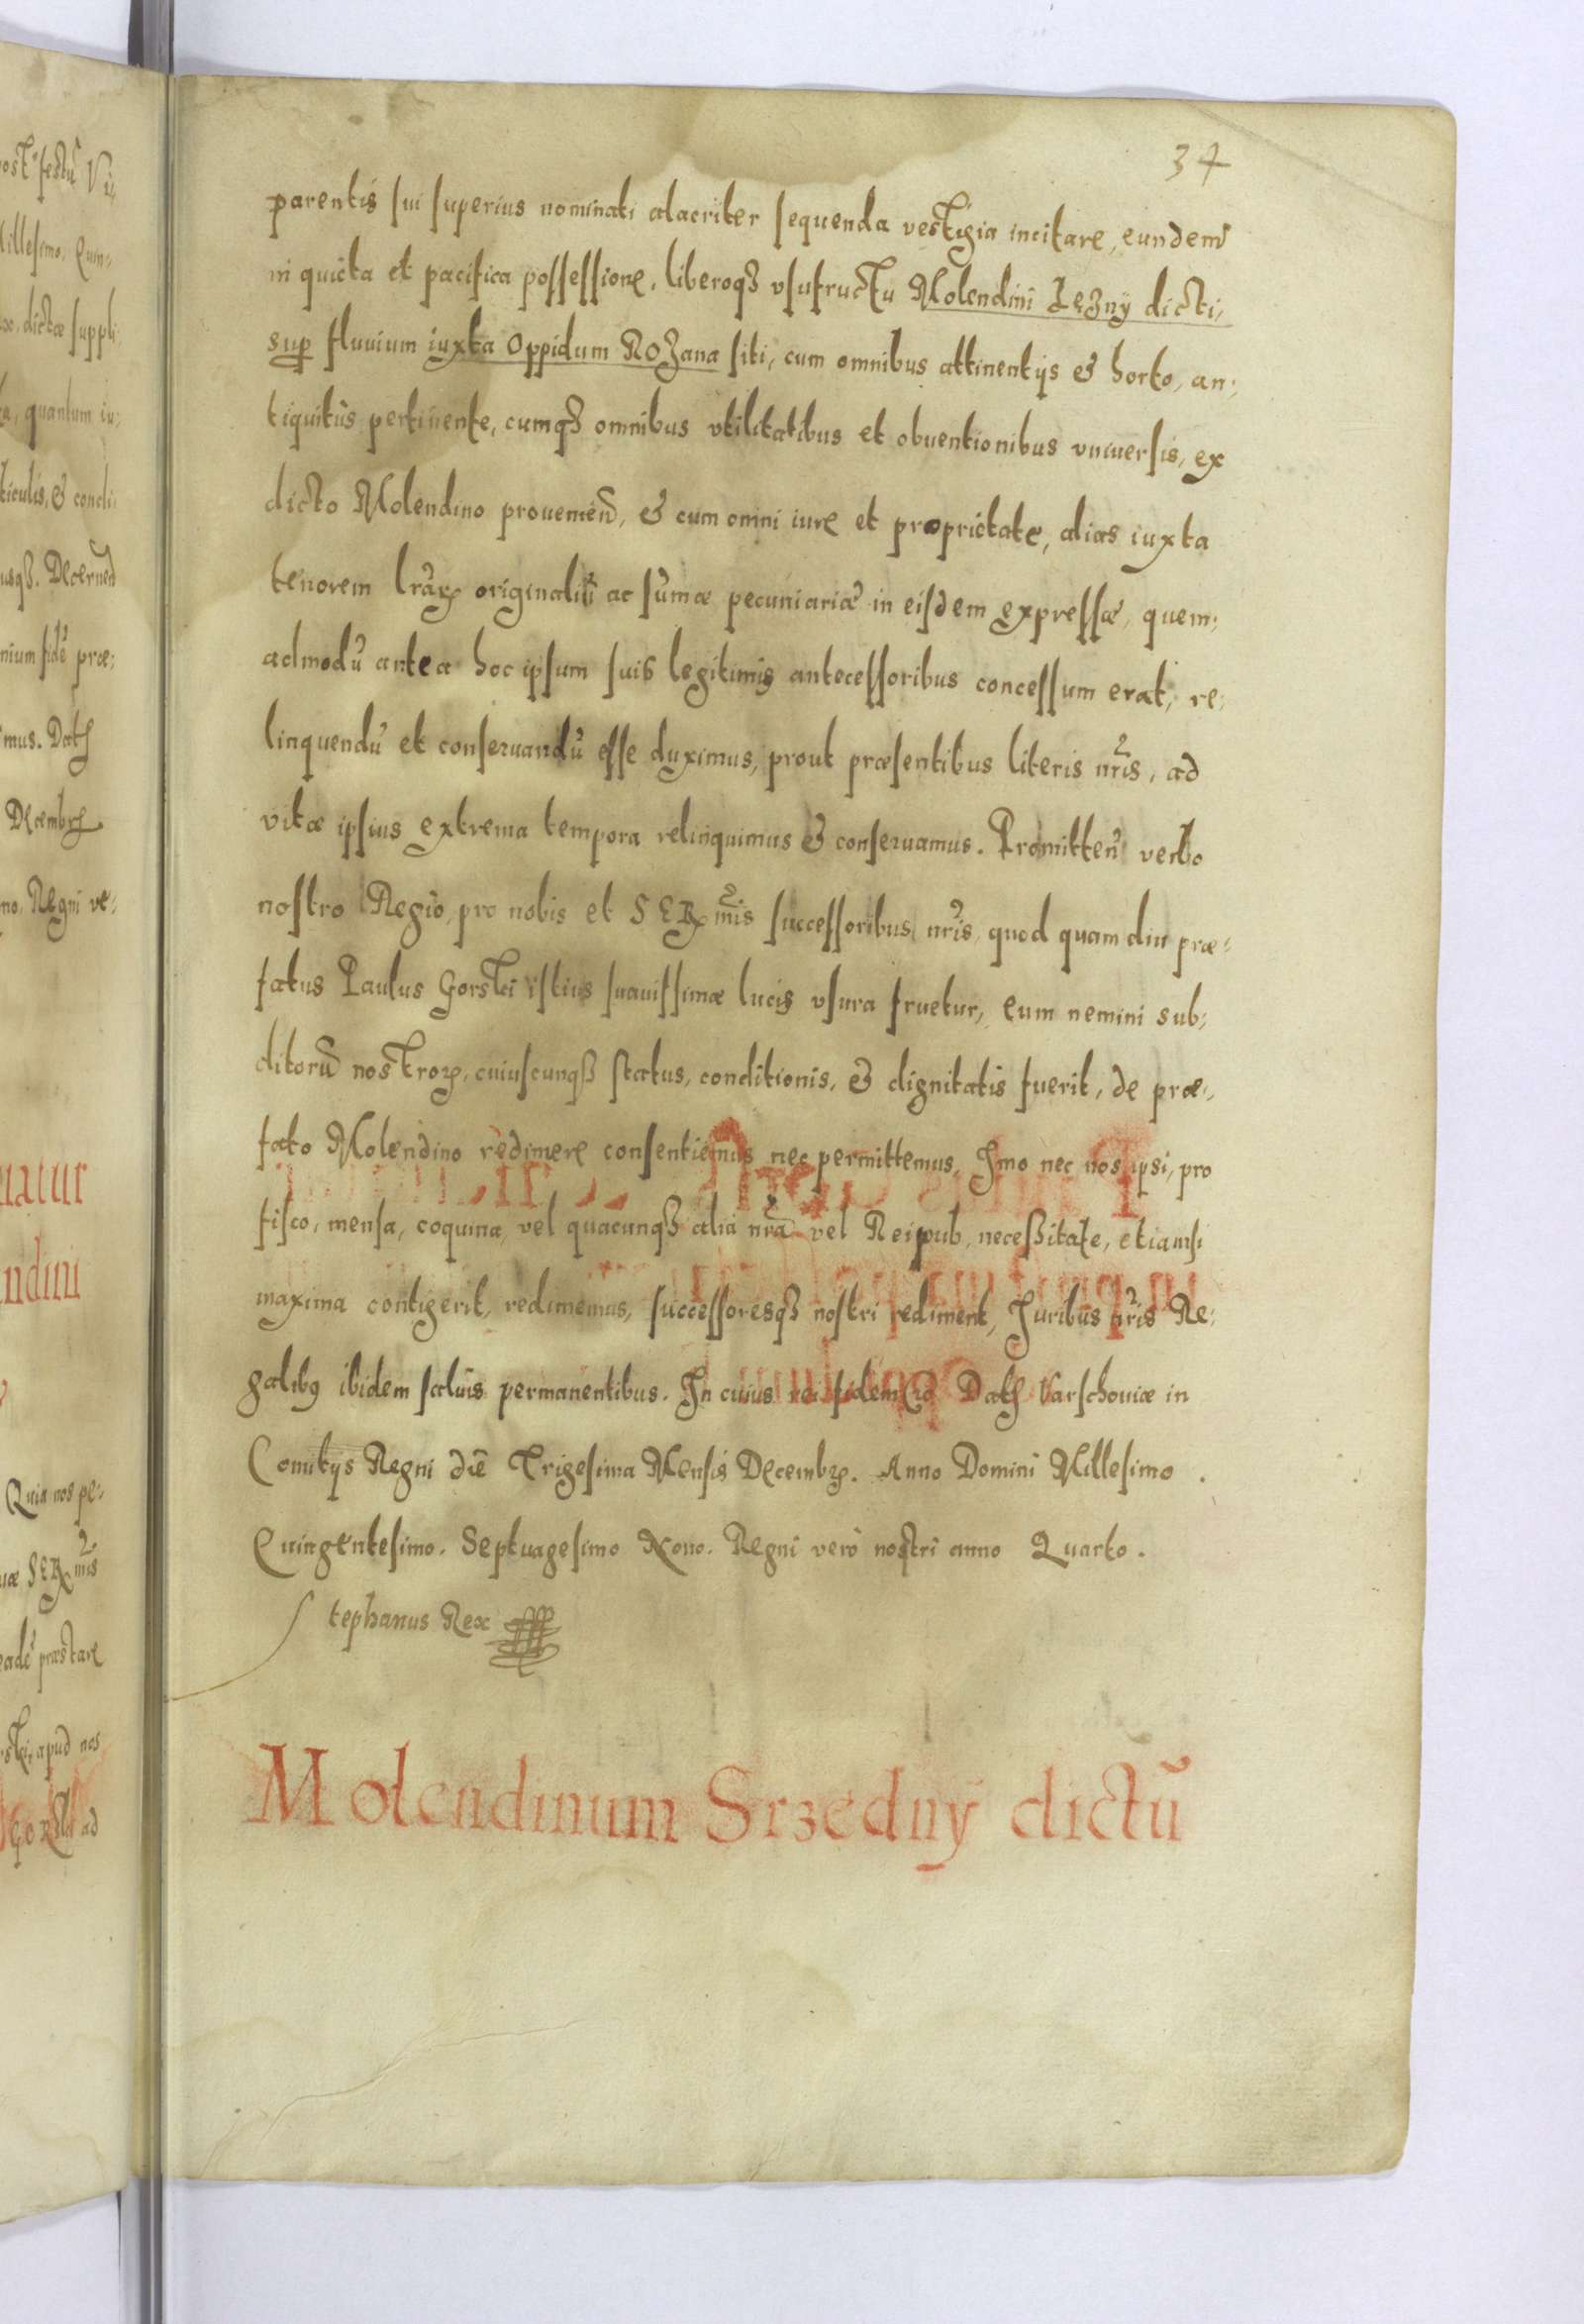 34
parentis sui superius nominati alacriter sequenda vestigia incitare, eundem
in quieta et pacifica possessione, liberoq3 vsufructu Molendini Jezny dicti,
sup fluuium iuxta Oppidum ROZana siti, cum omnibus attinentijs & horto, an,
tiquitus pertinente, cumq3 omnibus vtilitatibus et obuentionibus vniuersis, ex
dicto Molendino prouenien̄, & cum omni iure et proprietate, alias iuxta
tenorem lrarꝝ originaliū ac sūmæ pecuniariæ in eisdem expressæ, quem,
admodū antea hoc ipsum suis legitimis antecessoribus concessum erat, re,
linquendū et conseruandū esse duximus, prout præsentibus literis nris, ad
vitæ ipsius extrema tempora relinquimus & conseruamus. Promitten̄ verbo
nostro Regio, pro nobis et SERmis successoribus nris, quod quam diu præ,
fatus Paulus Gorski istius suauissimæ lucis vsura fruetur, eum nemini sub,
ditorū nostrorꝝ, cuiuscunq3 status, conditionis, & dignitatis fuerit, de præ,
fato Molendino redimere consentiemus nec permittemus. Imo nec nos ipsi, pro
fisco, mensa, coquina, vel quacunq3 alia nra vel Reipub, necessitate, etiamsi
maxima contigerit, redimemus, successoresq3 nostri rediment, Juribus nris Re,
galibꝰ ibidem saluis permanentibus. In cuius rei fidem Dat Varschouiæ in
Comitijs Regni diē Trigesima Mensis Decembrꝭ. Anno Domini Millesimo
Quingentesimo. Septuagesimo Nono. Regni verò nostri anno Quarto.
Stephanus Rex
Molendinum Srzedny dictū